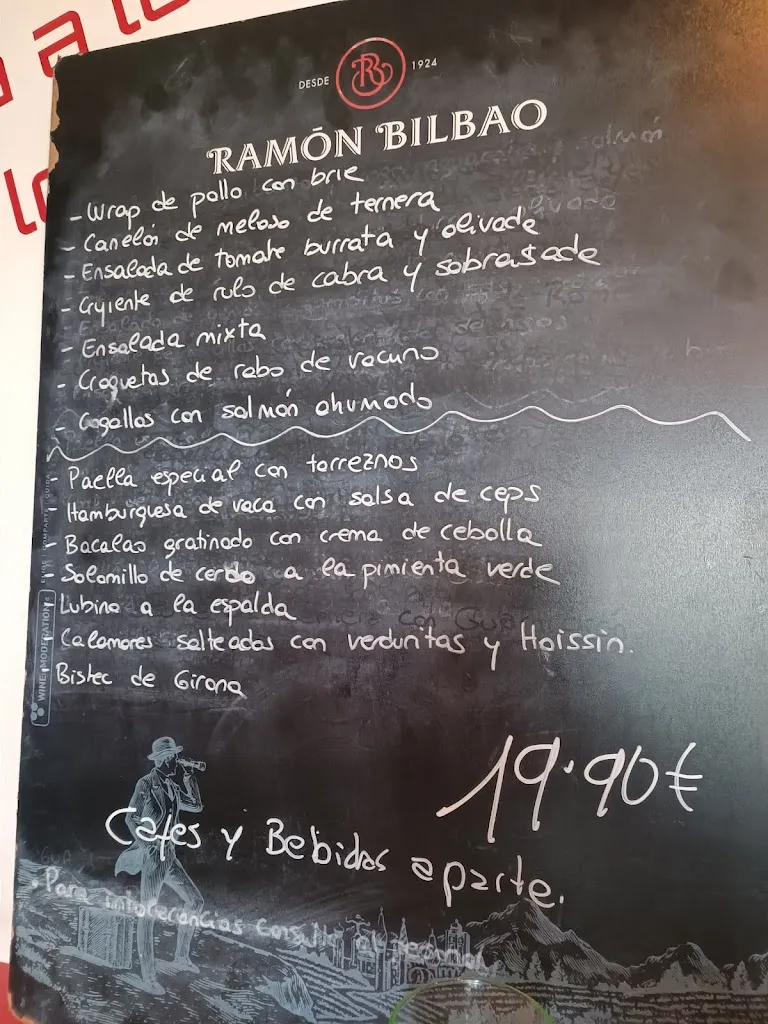 DESDE 1924
RAMÓN BILBAO
- Wrap de pollo con brie
- Canelón de meloso de ternera
- Ensalada de tomate burrata y olivade
- Crujiente de rulo de cabra y sobrasade
- Ensalada mixta
- Croquetas de rabo de vacuno
- Cogollos con salmón ahumado
- Paella especial con torreznos
- Hamburguesa de vaca con salsa de ceps
- Bacalao gratinado con crema de cebolla
- Solomillo de cerdo a la pimienta verde
- Lubina a la espalda
- Calamares salteados con verduritas y Hoissin.
- Bistec de Girona
19.90€
Cafes y Bebidas aparte.
. Para intolerancias consulte al personal
WINE MODERATION